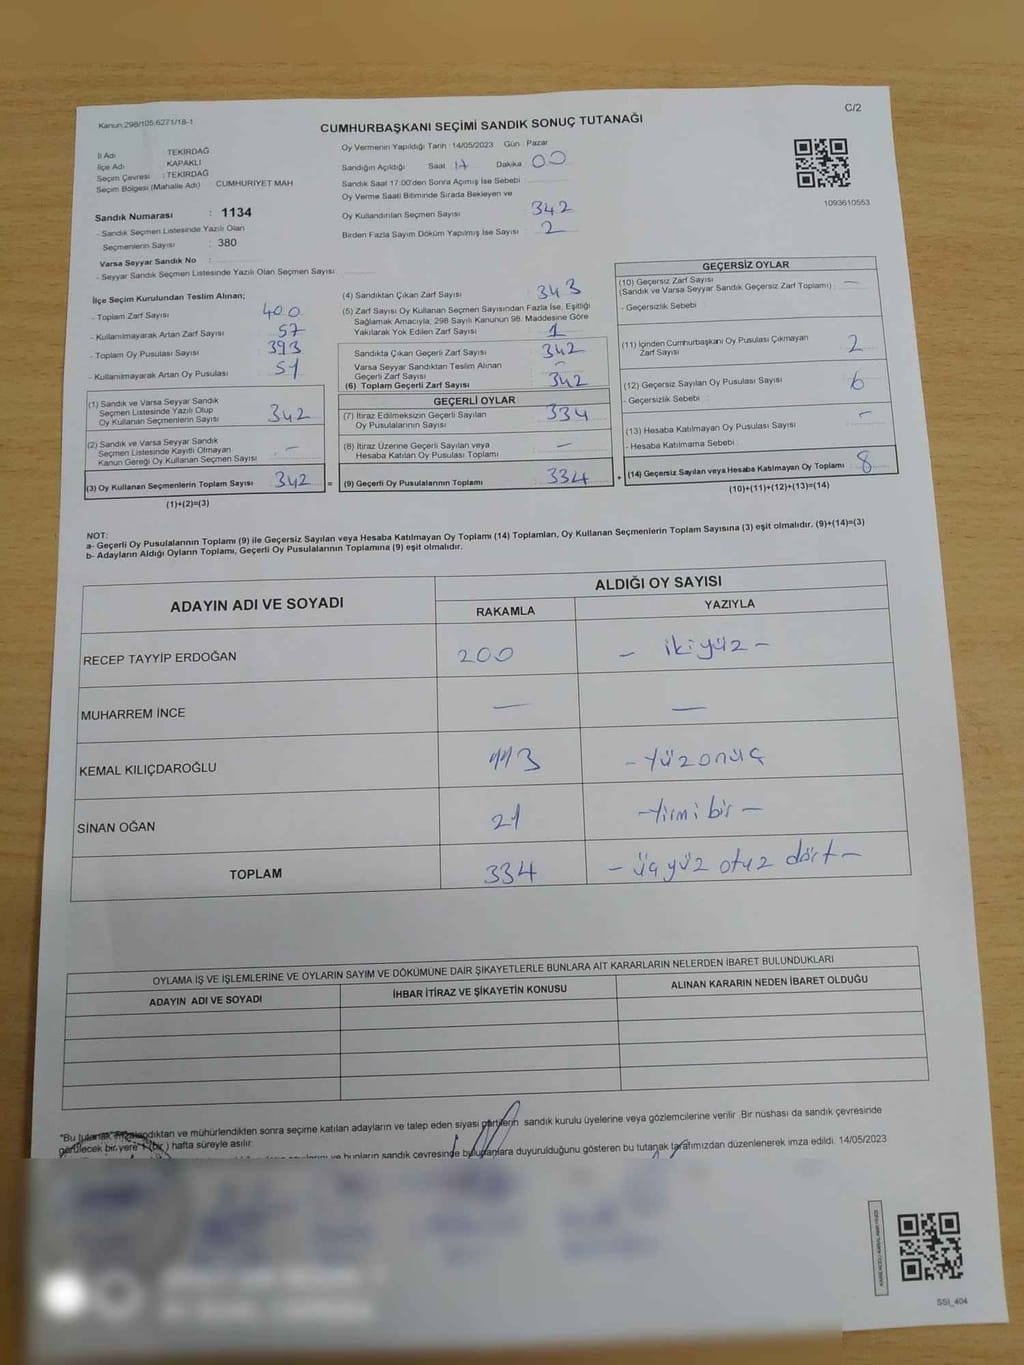 Kanun:298/105,6271/18-1
C/2
CUMHURBAŞKANI SEÇİMİ SANDIK SONUÇ TUTANAĞI
İl Adı TEKİRDAĞ
İlçe Adı KAPAKLI
Seçim Çevresi : TEKİRDAĞ
Seçim Bölgesi (Mahalle Adı) CUMHURİYET MAH
Sandık Numarası : 1134
- Sandık Seçmen Listesinde Yazılı Olan
Seçmenlerin Sayısı : 380
Varsa Seyyar Sandık No :
- Seyyar Sandık Seçmen Listesinde Yazılı Olan Seçmen Sayısı :
Oy Vermenin Yapıldığı Tarih : 14/05/2023 Gün : Pazar
Sandığın Açıldığı Saat : 17 Dakika : 00
Sandık Saat 17:00'den Sonra Açımış İse Sebebi :
Oy Verme Saati Bitiminde Sırada Bekleyen ve
Oy Kullandırılan Seçmen Sayısı : 342
Birden Fazla Sayım Döküm Yapılmış İse Sayısı : 2
1093610553
İlçe Seçim Kurulundan Teslim Alınan;
- Toplam Zarf Sayısı : 400
- Kullanılmayarak Artan Zarf Sayısı : 57
- Toplam Oy Pusulası Sayısı : 393
- Kullanılmayarak Artan Oy Pusulası : 51
(1) Sandık ve Varsa Seyyar Sandık
Seçmen Listesinde Yazılı Olup
Oy Kullanan Seçmenlerin Sayısı : 342
(2) Sandık ve Varsa Seyyar Sandık
Seçmen Listesinde Kayıtlı Olmayan
Kanun Gereği Oy Kullanan Seçmen Sayısı : -
(3) Oy Kullanan Seçmenlerin Toplam Sayısı : 342 =
(1)+(2)=(3)
(4) Sandıktan Çıkan Zarf Sayısı : 343
(5) Zarf Sayısı Oy Kullanan Seçmen Sayısından Fazla İse, Eşitliği
Sağlamak Amacıyla, 298 Sayılı Kanunun 98. Maddesine Göre
Yakılarak Yok Edilen Zarf Sayısı : 1
Sandıkta Çıkan Geçerli Zarf Sayısı : 342
Varsa Seyyar Sandıktan Teslim Alınan
Geçerli Zarf Sayısı : -
(6) Toplam Geçerli Zarf Sayısı : 342
GEÇERLİ OYLAR
(7) İtiraz Edilmeksizin Geçerli Sayılan
Oy Pusulalarının Sayısı : 334
(8) İtiraz Üzerine Geçerli Sayılan veya
Hesaba Katılan Oy Pusulası Toplamı : -
(9) Geçerli Oy Pusulalarının Toplamı : 334 +
GEÇERSİZ OYLAR
(10) Geçersiz Zarf Sayısı
(Sandık ve Varsa Seyyar Sandık Geçersiz Zarf Toplamı) : -
- Geçersizlik Sebebi :
(11) İçinden Cumhurbaşkanı Oy Pusulası Çıkmayan
Zarf Sayısı : 2
(12) Geçersiz Sayılan Oy Pusulası Sayısı : 6
- Geçersizlik Sebebi :
(13) Hesaba Katılmayan Oy Pusulası Sayısı : -
- Hesaba Katılmama Sebebi :
(14) Geçersiz Sayılan veya Hesaba Katılmayan Oy Toplamı : 8
(10)+(11)+(12)+(13)=(14)
NOT:
a- Geçerli Oy Pusulalarının Toplamı (9) ile Geçersiz Sayılan veya Hesaba Katılmayan Oy Toplamı (14) Toplamları, Oy Kullanan Seçmenlerin Toplam Sayısına (3) eşit olmalıdır. (9)+(14)=(3)
b- Adayların Aldığı Oyların Toplamı, Geçerli Oy Pusulalarının Toplamına (9) eşit olmalıdır.
ADAYIN ADI VE SOYADI
ALDIĞI OY SAYISI
RAKAMLA YAZIYLA
RECEP TAYYİP ERDOĞAN 200 - ikiyüz -
MUHARREM İNCE - -
KEMAL KILIÇDAROĞLU 113 - Yüzonüç
SİNAN OĞAN 21 - Yirmi bir -
TOPLAM 334 - üçyüz otuz dört -
OYLAMA İŞ VE İŞLEMLERİNE VE OYLARIN SAYIM VE DÖKÜMÜNE DAİR ŞİKAYETLERLE BUNLARA AİT KARARLARIN NELERDEN İBARET BULUNDUKLARI
ADAYIN ADI VE SOYADI İHBAR İTİRAZ VE ŞİKAYETİN KONUSU ALINAN KARARIN NEDEN İBARET OLDUĞU
*Bu tutanak imzalandıktan ve mühürlendikten sonra seçime katılan adayların ve talep eden siyasi partilerin sandık kurulu üyelerine veya gözlemcilerine verilir. Bir nüshası da sandık çevresinde
görülecek bir yere 1 (bir) hafta süreyle asılır.
ve bunların sandık çevresinde bulunanlara duyurulduğunu gösteren bu tutanak tarafımızdan düzenlenerek imza edildi. 14/05/2023
SSI_404